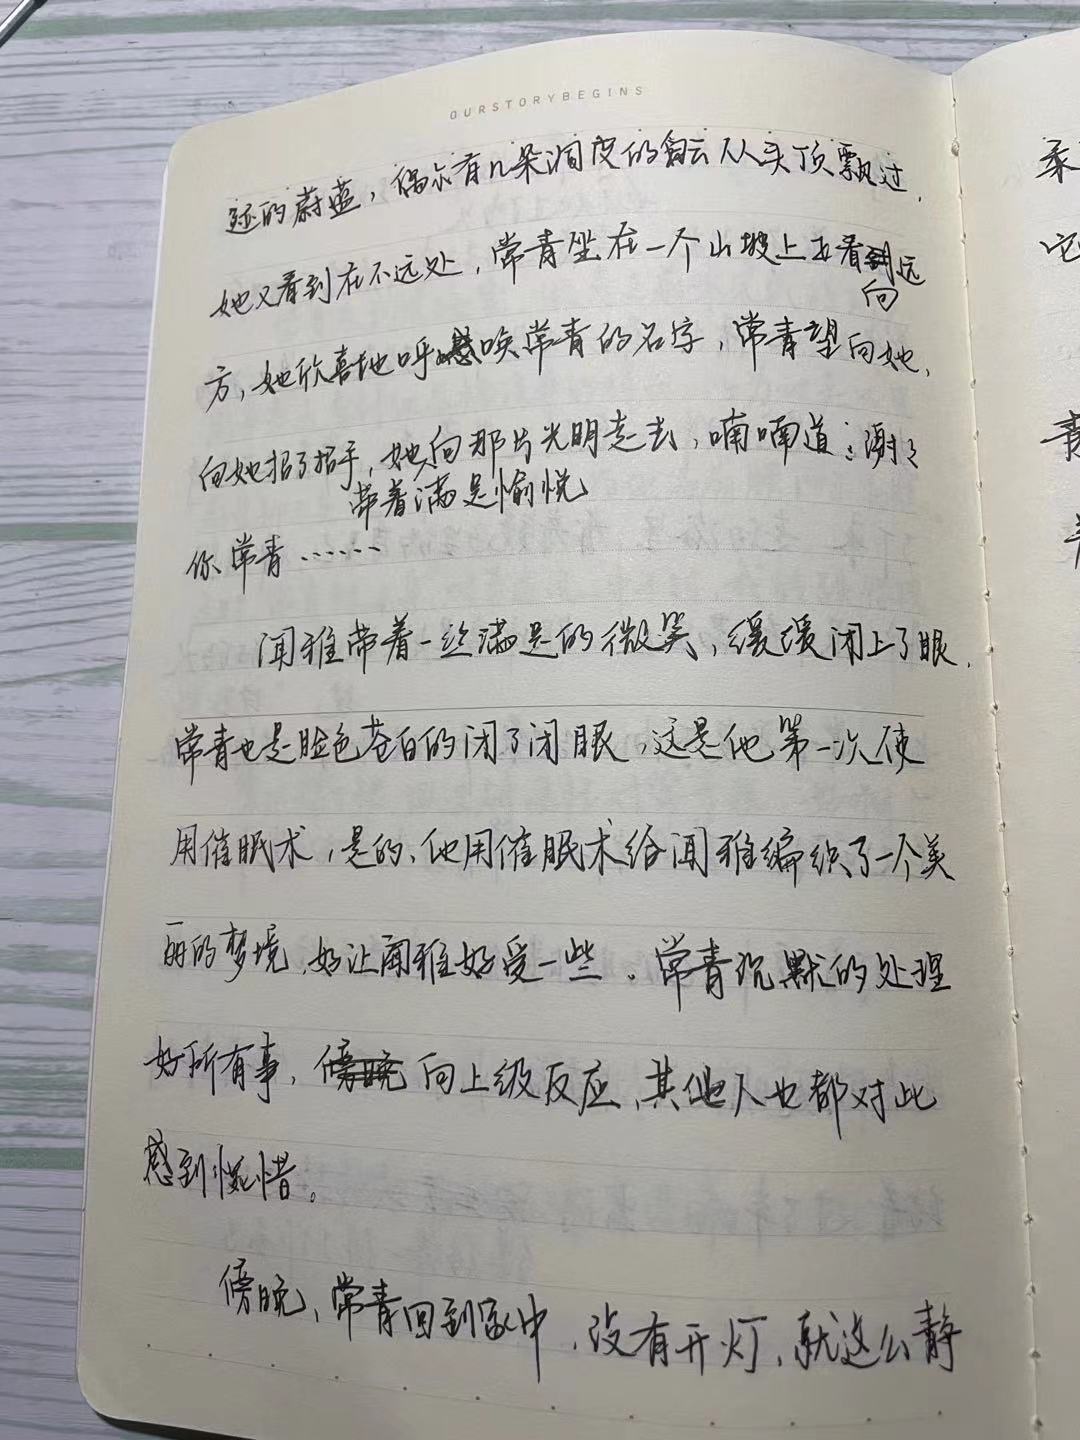 OURSTORYBEGINS
迹的蔚蓝，偶尔有几朵洁白的云从头顶飘过，
她又看到在不远处，常青坐在一个山坡上看远
向
方，她欣喜地呼唤常青的名字，常青望向她，
向她招了招手，她向那片光明走去，喃喃道：谢谢
带着满足愉悦
你常青……
闻雅带着一丝满足的微笑，缓缓闭上了眼，
常青也是脸色苍白的闭了闭眼，这是他第一次使
用催眠术，是的，他用催眠术给闻雅编织了一个美
丽的梦境，好让闻雅好受一些。常青沉默的处理
好所有事，傍晚向上级反应，其他人也都对此
感到惋惜。
傍晚，常青回到家中，没有开灯，就这么静